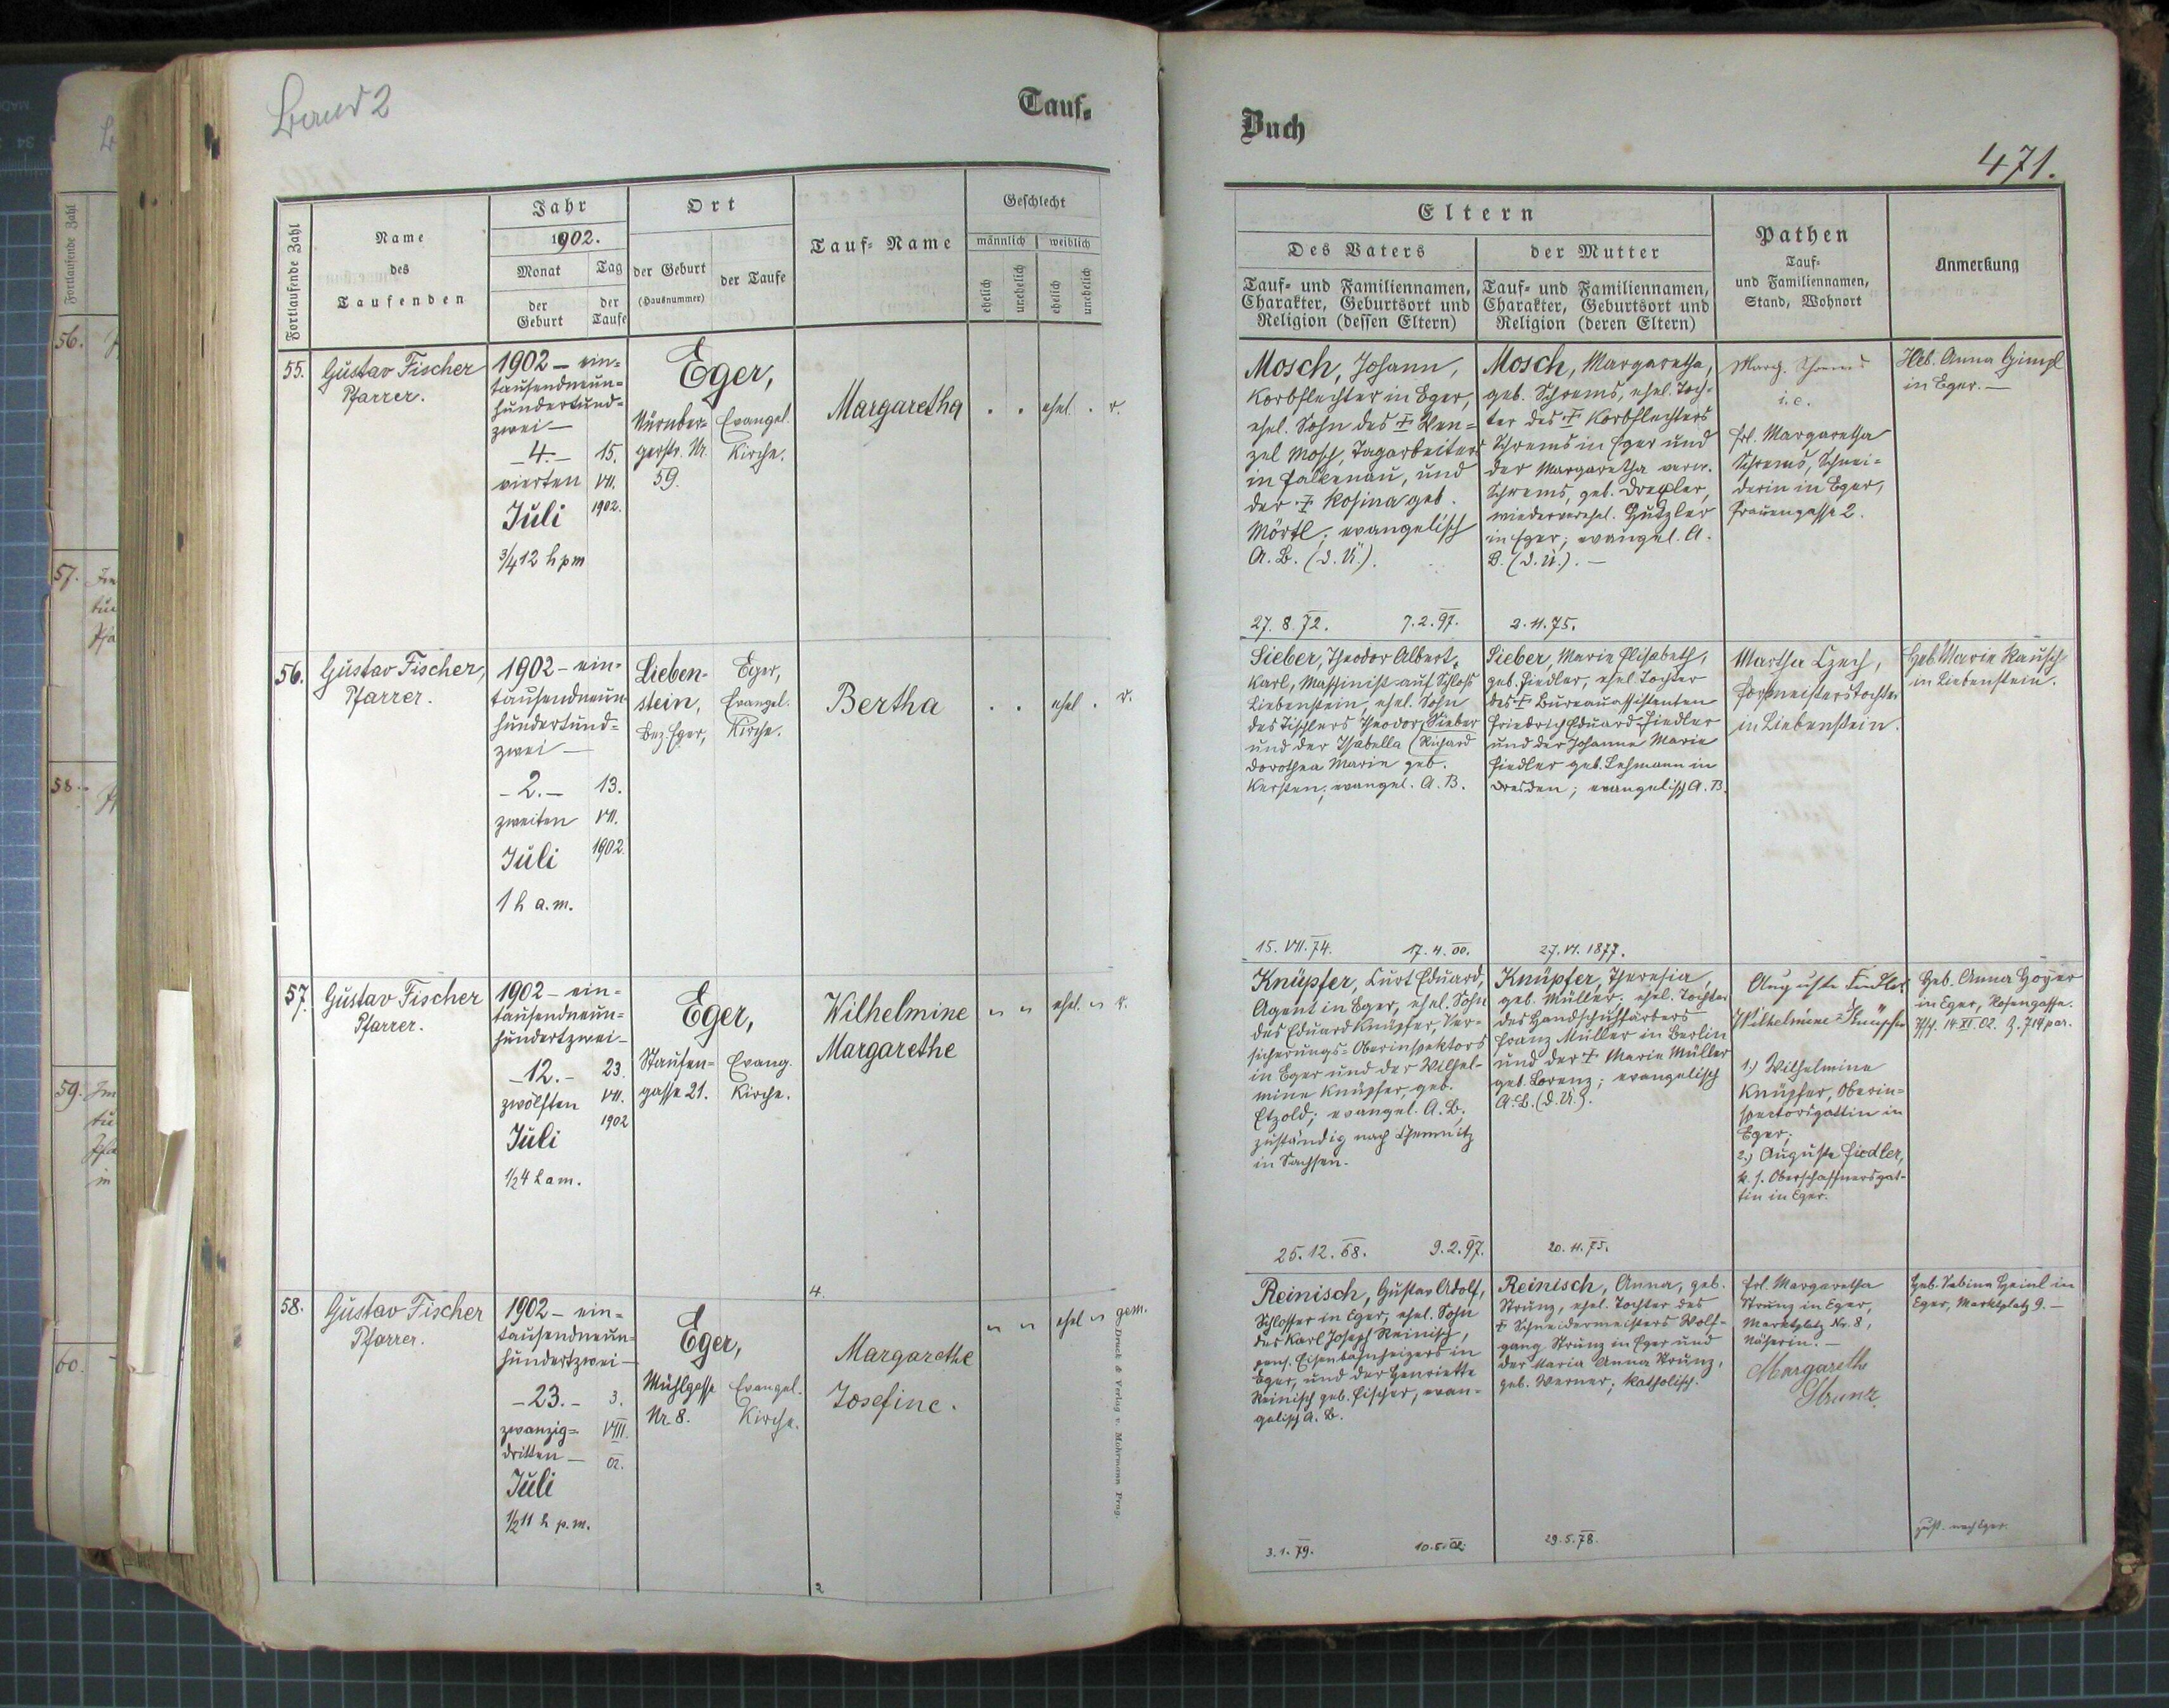 Band 2
Tauf-
Fortlaufende Zahl
Name
des
Taufenden
Jahr
1902.
Monat
der
Geburt
Tag
der
Taufe
Ort
der Geburt
(Hausnummer)
der Taufe
Tauf-Name
Geschlecht
männlich
weiblich
ehelich
unehelich
ehelich
unehelich
55.
Gustav Fischer
Pfarrer.
1902 – ein-
tausendneun-
hundertund-
zwei –
– 4. –
vierten
Juli
3/4 12 h pm
15.
VII.
1902.
Eger,
Nürnber-
gerstr. Nr.
59.
Evangel.
Kirche.
Margaretha
ehel.
56.
Gustav Fischer,
Pfarrer.
1902 – ein-
tausendneun-
hundertund-
zwei –
– 2. –
zweiten
Juli
1 h a.m.
13.
VII.
1902.
Lieben-
stein,
Bez. Eger,
Eger,
Evangel.
Kirche.
Bertha
ehel.
57.
Gustav Fischer
Pfarrer.
1902 – ein-
tausendneun-
hundertzwei –
– 12. –
zwölften
Juli
1/2 4 h am.
23.
VII.
1902
Eger,
Staufen-
gasse 21.
Evang.
Kirche.
Wilhelmine
Margarethe
ehel.
58.
Gustav Fischer
Pfarrer.
1902 – ein-
tausendneun-
hundertzwei –
– 23. –
zwanzig-
dritten –
Juli
1/2 11 h p.m.
3.
VIII.
02.
Eger,
Mühlgasse
Nr. 8.
Evangel.
Kirche.
4.
Margarethe
Josefine.
2
ehel
gem.
Druck & Verlag v. Mohrmann Prag.
Buch
471.
Eltern
Des Vaters
Tauf- und Familiennamen,
Charakter, Geburtsort und
Religion (dessen Eltern)
der Mutter
Tauf- und Familiennamen,
Charakter, Geburtsort und
Religion (deren Eltern)
Pathen
Tauf-
und Familiennamen,
Stand, Wohnort
Anmerkung
Mosch, Johann,
Korbflechter in Eger,
ehel. Sohn des † Wen-
zel Mosch, Tagarbeiters
in Falkenau, und
der † Rosina geb.
Mörtl; evangelisch
A. B. (d. Ü.).
27. 8. 72.
7. 2. 97.
Mosch, Margaretha,
geb. Schrems, ehel. Toch-
ter des † Korbflechters
Schrems in Eger und
der Margaretha verw.
Schrems, geb. Drexler,
wiederverehel. Hutzler
in Eger; evangel. A.
B. (d. Ü.). –
2. 11. 75.
Marg. Schrems
i. e.
Frl. Margaretha
Schrems, Schnei-
derin in Eger,
Frauengasse 2.
Heb. Anna Gimpl
in Eger. –
Sieber, Theodor Albert
Karl, Maschinist auf Schloss
Liebenstein, ehel. Sohn
des Tischlers Theodor Sieber
und der Isabella (Richard
Dorothea Marie geb.
Kersten; evangel. A. B.
15. VII. 74.
17. 4. 00.
Sieber, Marie Elisabeth,
geb. Fiedler, ehel. Tochter
des † Bureauassistenten
Friedrich Eduard Fiedler
und der Johanne Marie
Fiedler geb. Lehmann in
Dresden; evangelisch A. B.
27. VI. 1877.
Martha Czech,
Forstmeisterstochter
in Liebenstein.
Heb. Marie Rausch
in Liebenstein.
Knüpfer, Curt Eduard,
Agent in Eger, ehel. Sohn
des Eduard Knüpfer, Ver-
sicherungs-Oberinspektors
in Eger und der Wilhel-
mine Knüpfer, geb.
Etzold; evangel. A. B.,
zuständig nach Chemnitz
in Sachsen.
25. 12. 68.
9. 2. 97.
Knüpfer, Theresia,
geb. Müller, ehel. Tochter
des Handschuhfärbers
Franz Müller in Berlin
und der † Marie Müller
geb. Lorenz; evangelisch
A. B. (d. Ü.).
20. 11. 75.
Auguste Fiedler
Wilhelmine Knüpfer
1.) Wilhelmine
Knüpfer, Oberin-
spectorsgattin in
Eger;
2.) Auguste Fiedler,
k. s. Oberschaffnersgat-
tin in Eger.
Heb. Anna Hoyer
in Eger, Rosengasse.
14. XI. 02. Z. 714
Reinisch, Gustav Adolf,
Schlosser in Eger, ehel. Sohn
des Karl Joseph Reinisch,
pens. Eisenbahnheizers in
Eger, und der Henriette
Reinisch geb. Fischer, evan-
gelisch A. B.
3. 1. 79.
10. 5. 02.
Reinisch, Anna, geb.
Strunz, ehel. Tochter des
† Schneidermeisters Wolf-
gang Strunz in Eger und
der Maria Anna Strunz,
geb. Werner; katholisch.
29. 5. 78.
Frl. Margaretha
Strunz in Eger,
Marktplatz Nr. 8,
Näherin. –
Margarethe
Strunz
Heb. Sabina Heinl in
Eger, Marktplatz 9. –
zust. nach Eger.